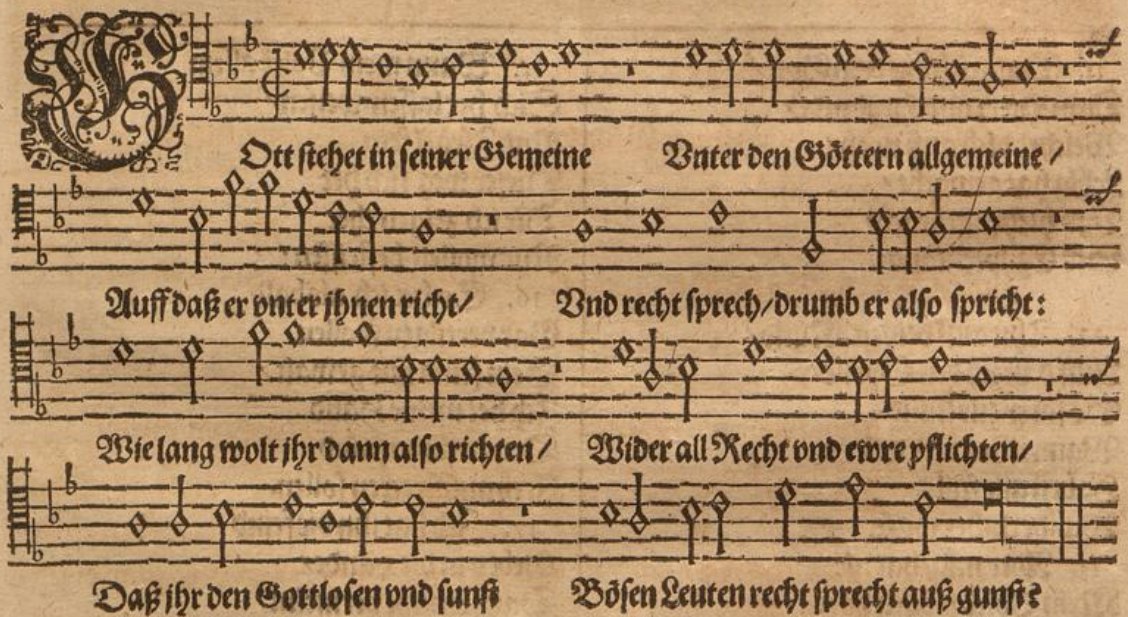 GOtt stehet in seiner Gemeine Vnter den Göttern allgemeine /
Auff daß er vnter jhnen richt/ Vnd recht sprech/drumb er also spricht:
Wie lang wolt jhr dann also richten/ Wider all Recht vnd ewre pflichten/
Daß jhr den Gottlosen vnd sunst Bösen Leuten recht sprecht auß gunst?